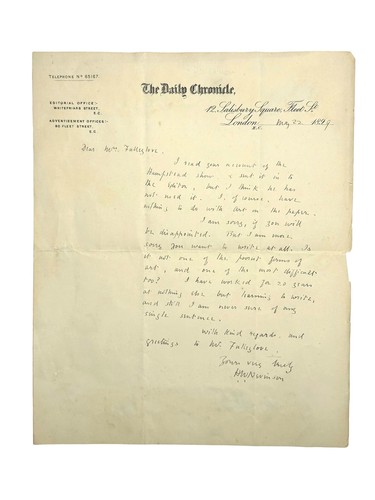 TELEPHONE Nº 65167.
EDITORIAL OFFICE:-
WHITEFRIARS STREET,
E.C.
ADVERTISEMENT OFFICES:-
80 FLEET STREET,
E.C.
The Daily Chronicle,
12, Salisbury Square, Fleet St.
London, May 22 1899.
E.C.
Dear Mrs. Fulleylove.
I read your account of the
Hampstead show & sent it in to
the Editor, but I think he has
not used it. I, of course, have
nothing to do with art in the paper.
I am sorry, if you will
be disappointed. But I am more
sorry you want to write at all. Is
it not one of the poorest forms of
art, and one of the most difficult
too? I have worked for 20 years
at nothing else but learning to write,
and still I am never sure of any
single sentence.
With kind regards and
greetings to Mr. Fulleylove.
Yours very truly
H W Nevinson